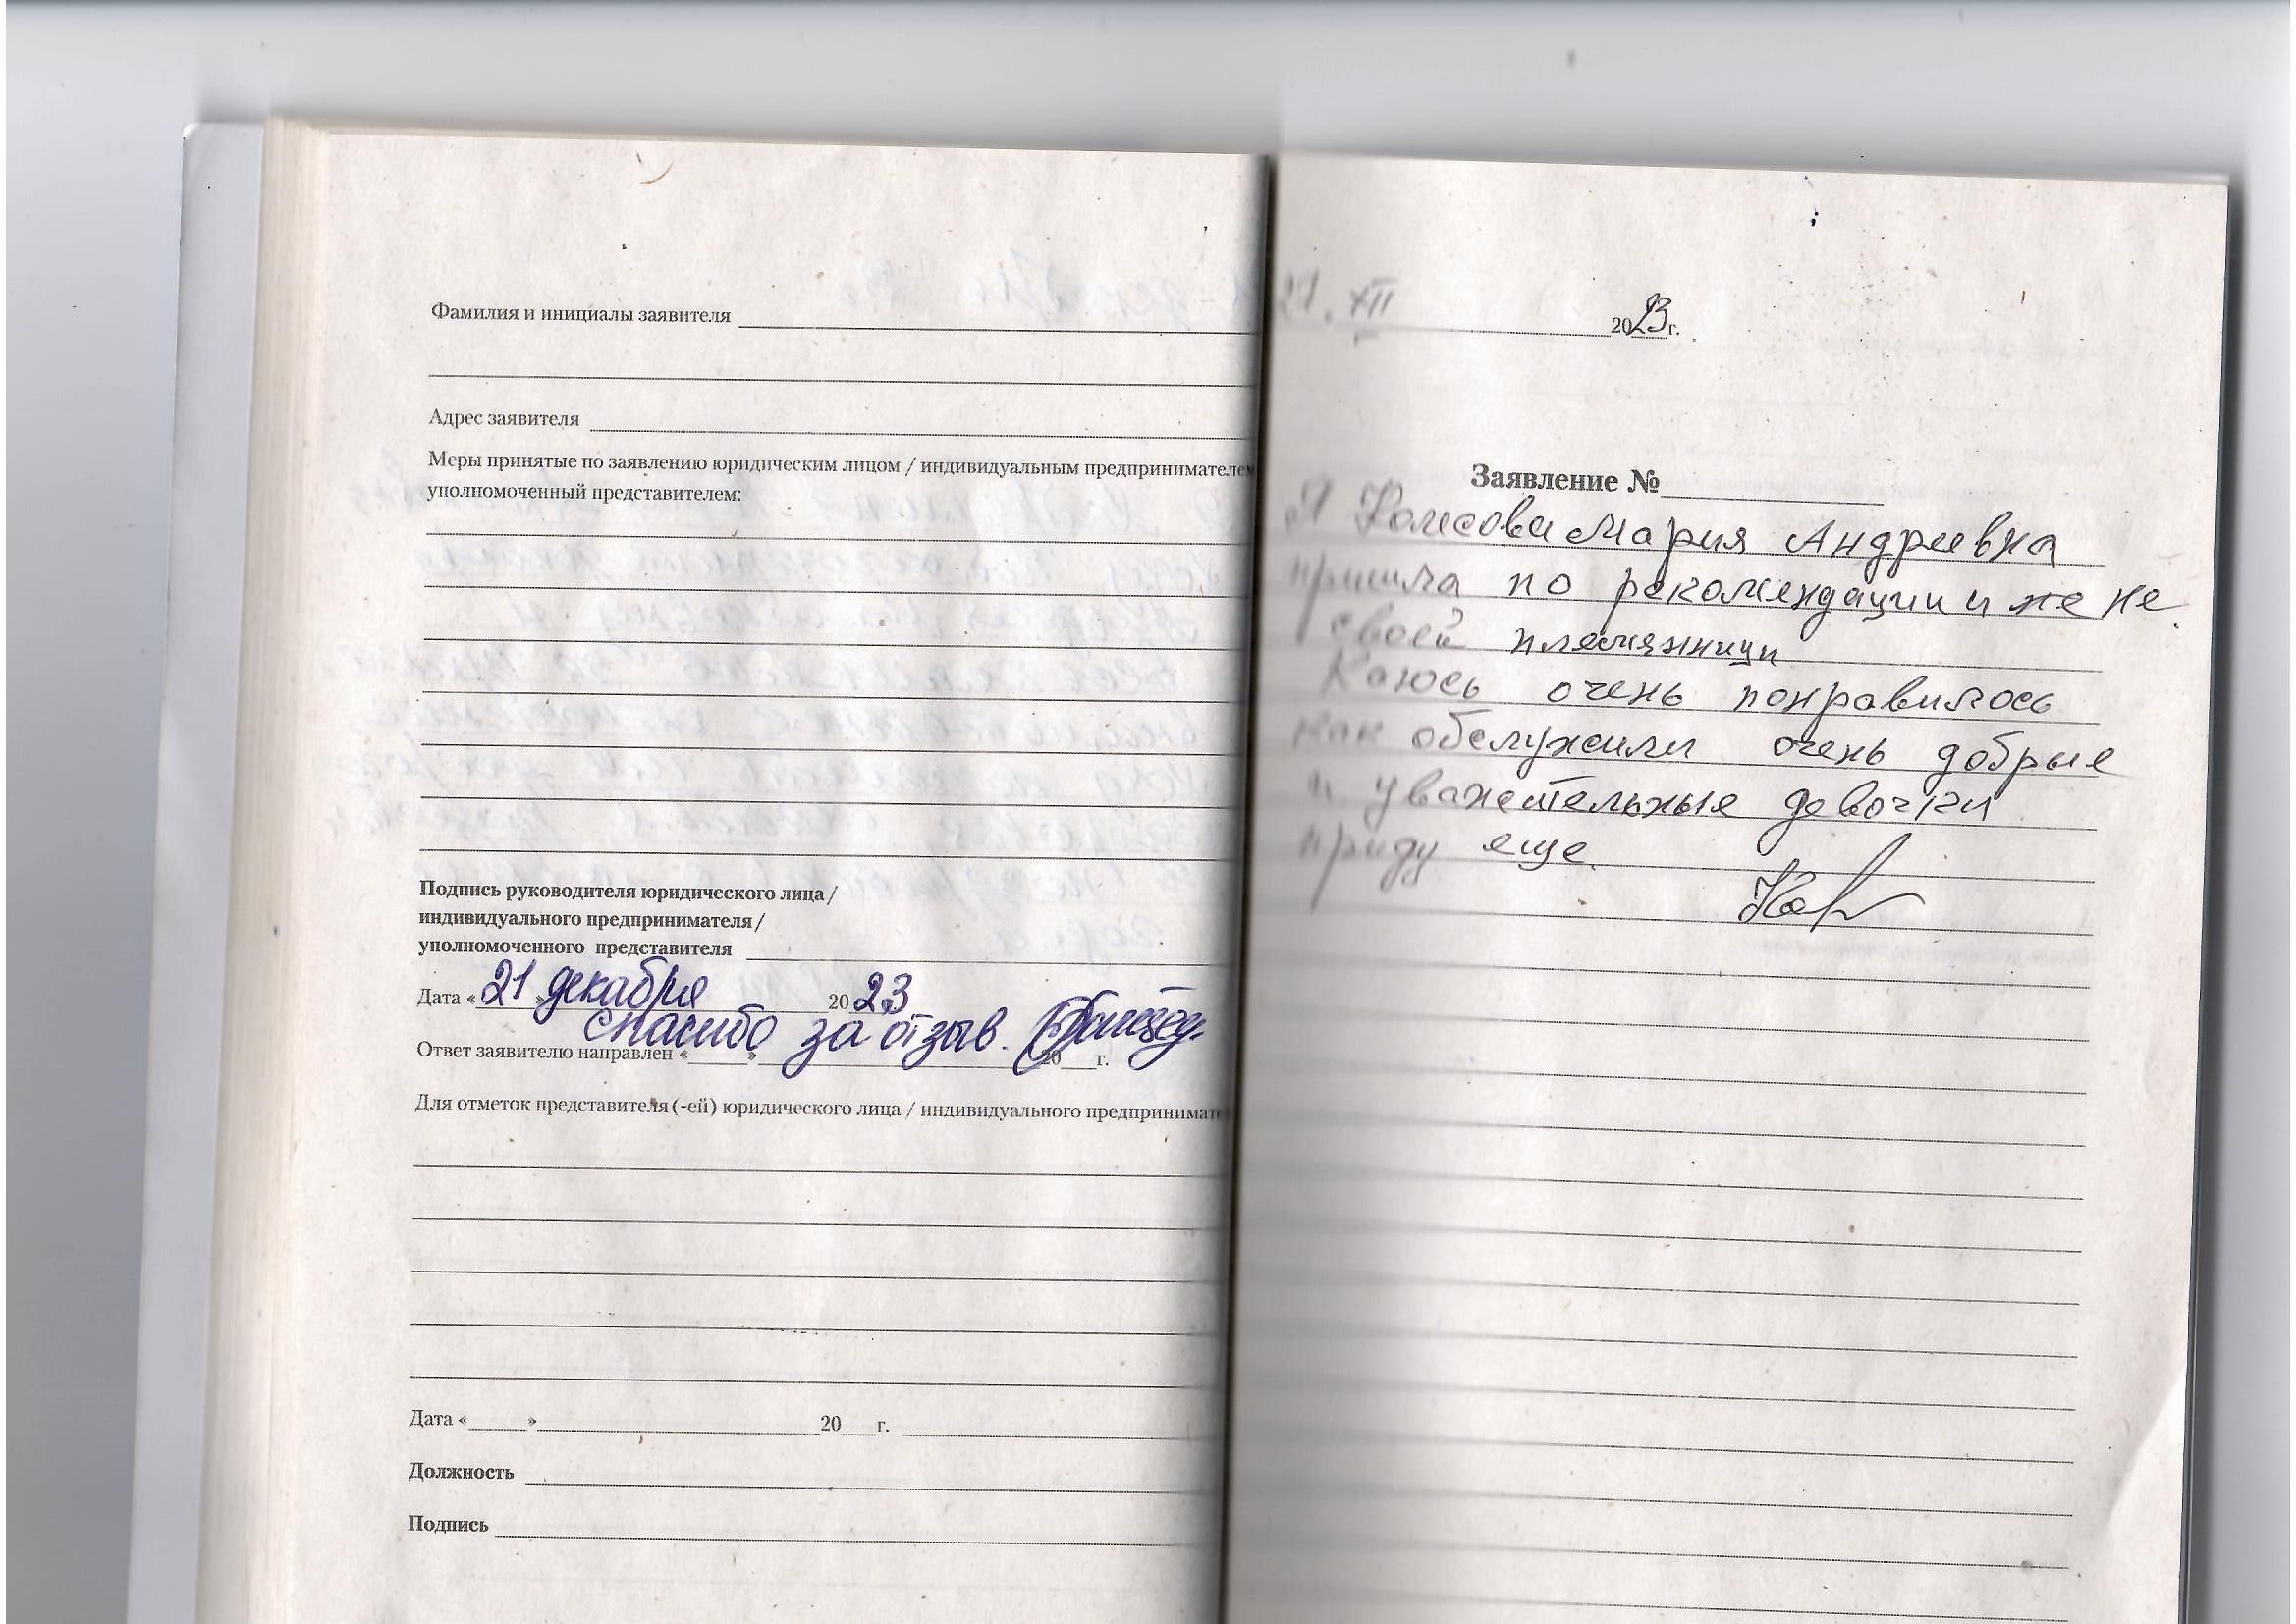 Фамилия и инициалы заявителя
Адрес заявителя
Меры принятые по заявлению юридическим лицом / индивидуальным предпринимателем
уполномоченный представителем:
Подпись руководителя юридического лица /
индивидуального предпринимателя /
уполномоченного представителя
Дата «21» декабря 2023
спасибо за отзыв.
Ответ заявителю направлен «____» 20__г.
Для отметок представителя (-ей) юридического лица / индивидуального предпринимат
Дата «____» 20__г.
Должность
Подпись
XII 2023г.
Заявление №
Я Мария Андреевна
пришла по рекомендации и не не
своей племянници
Каюсь очень понравилось
как обслужили очень добрые
и уважетельные девочки
приду еще